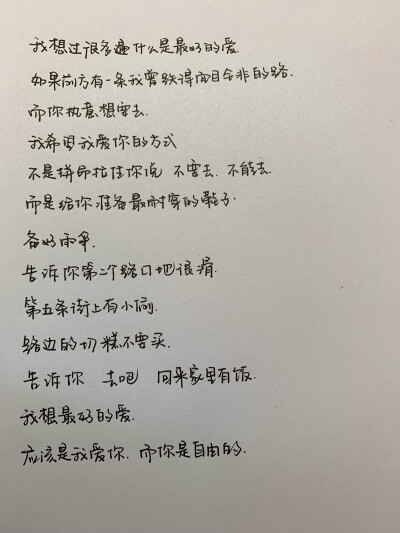 我想过很多遍什么是最好的爱.
如果前方有一条我曾跌得面目全非的路.
而你执意想要去.
我希望我爱你的方式
不是拼命拉住你说 不要去. 不能去.
而是给你准备最耐穿的鞋子.
备好雨伞.
告诉你第二个路口地很滑.
第五条街上有小偷.
路边的切糕不要买.
告诉你 去吧 回来家里有饭.
我想最好的爱.
应该是我爱你. 而你是自由的.